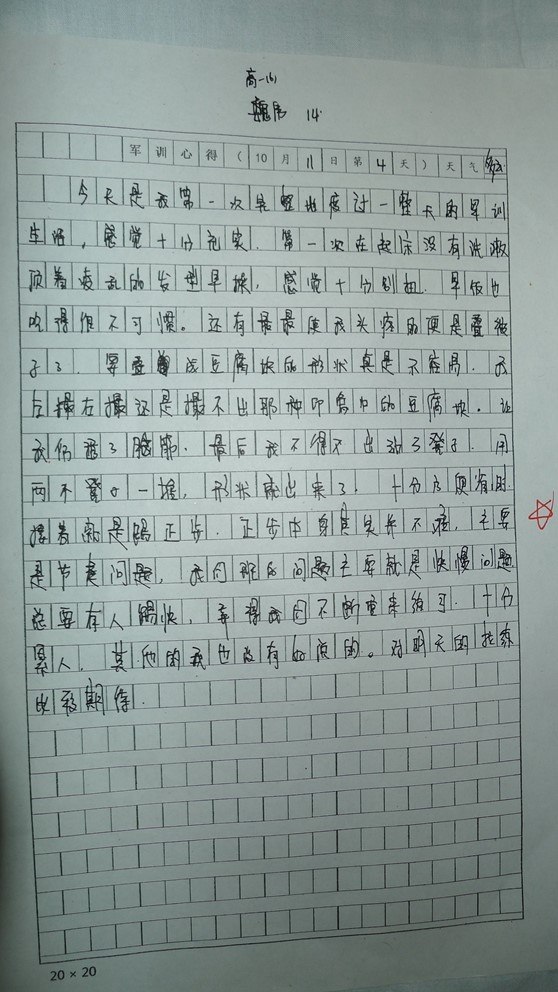 高一(6)
14
军训心得(10月11日第4天)天气
今天是我第一次完整地度过一整天的军训
生活,感觉十分充实.第一次在起床没有洗漱
顶着凌乱的发型早操,感觉十分别扭.早饭也
吃得很不可惯。还有最最使我头疼的便是叠被
子了 要叠成豆腐块的形状真是不容易.我
左撮右撮还是撮不出那种印象中的豆腐块。让
我伤透了脑筋.最后我不得不出动了凳子.用
两个凳子一堆,形状就出来了.十分方便省时.
接着就是踢正步.正步本身其实并不难,主要
是节奏问题,我们班的问题主要就是快慢问题
总要有人踢快,弄得我们不断重来练习.十分
累人.其他的我也没有如何的。对明天的拉练
比较期待.
20×20